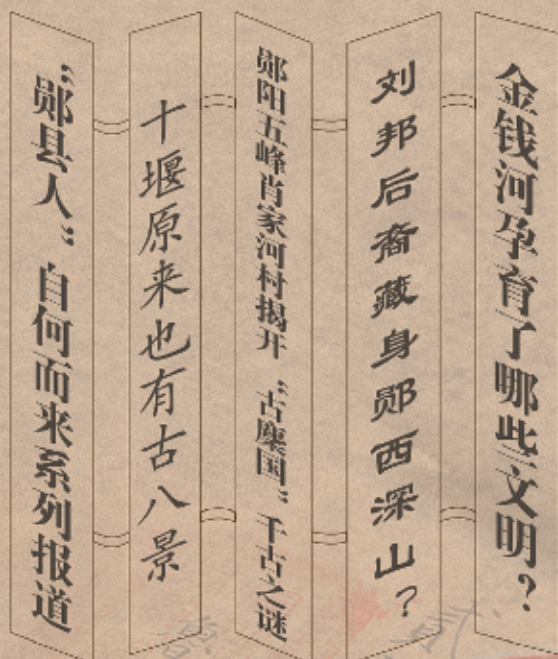 金钱河孕育了哪些文明？
刘邦后裔藏身郧西深山？
郧阳五峰肖家河村揭开“古麇国”千古之谜
十堰原来也有古八景
“郧县人”自何而来系列报道